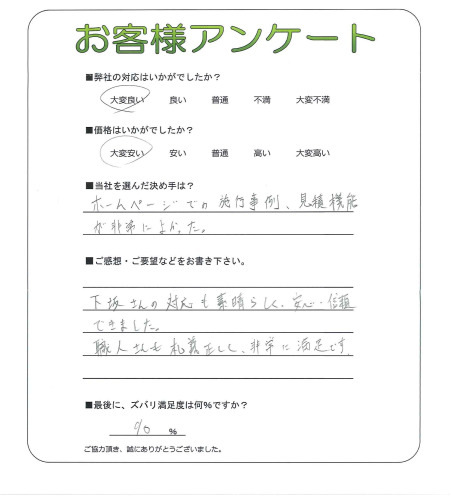 お客様アンケート
■弊社の対応はいかがでしたか?
大変良い 良い 普通 不満 大変不満
■価格はいかがでしたか?
大変安い 安い 普通 高い 大変高い
■当社を選んだ決め手は?
ホームページでの施行事例、見積機能
が非常によかった。
■ご感想・ご要望などをお書き下さい。
下坂さんの対応も素晴らしく、安心・信頼
できました。
職人さんも礼義正しく、非常に満足です
■最後に、ズバリ満足度は何%ですか?
%
ご協力頂き、誠にありがとうございました。